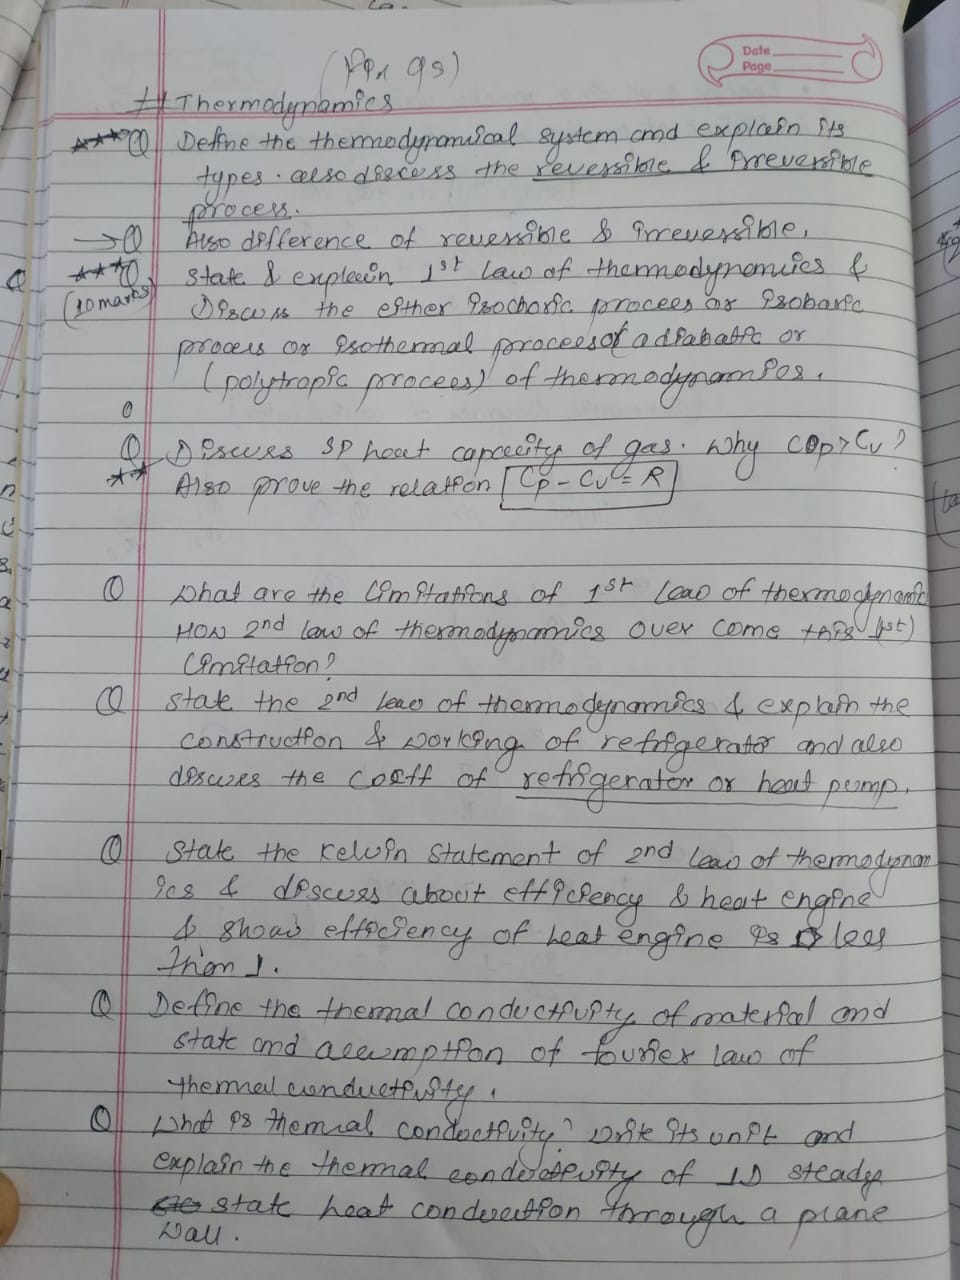 Date
Page
# Thermodynamics
*** Q Define the thermodynamical system and explain its
types. also discess the reversible & irreversible
process.
→ Q Also difference of reversible & irreversible.
*** Q State & explain 1st law of thermodynomics &
(10 marks) Discuss the either isochoric process or isobaric
process or isothermal process or adiabatic or
(polytropic process) of thermodynamics.
Q Discuss SP heat capacity of gas. Why Cp > Cv?
** Also prove the relation Cp - Cv = R
Q What are the limitations of 1st law of thermodynamic
How 2nd law of thermodynamics over come this (1st)
limitation?
Q State the 2nd law of thermodynamics & explain the
construction & working of refrigerator and also
discuss the coeff of refrigerator or heat pump.
Q State the Kelvin Statement of 2nd law of thermodynam
ics & discuss about efficiency & heat engine
& show efficiency of heat engine is less
than 1.
Q Define the thermal conductivity of material and
state and assumption of fourier law of
thermal conductivity.
Q What is thermal conductivity? Write its unit and
explain the thermal conductivity of 1D steady
state heat conduction through a plane
wall.